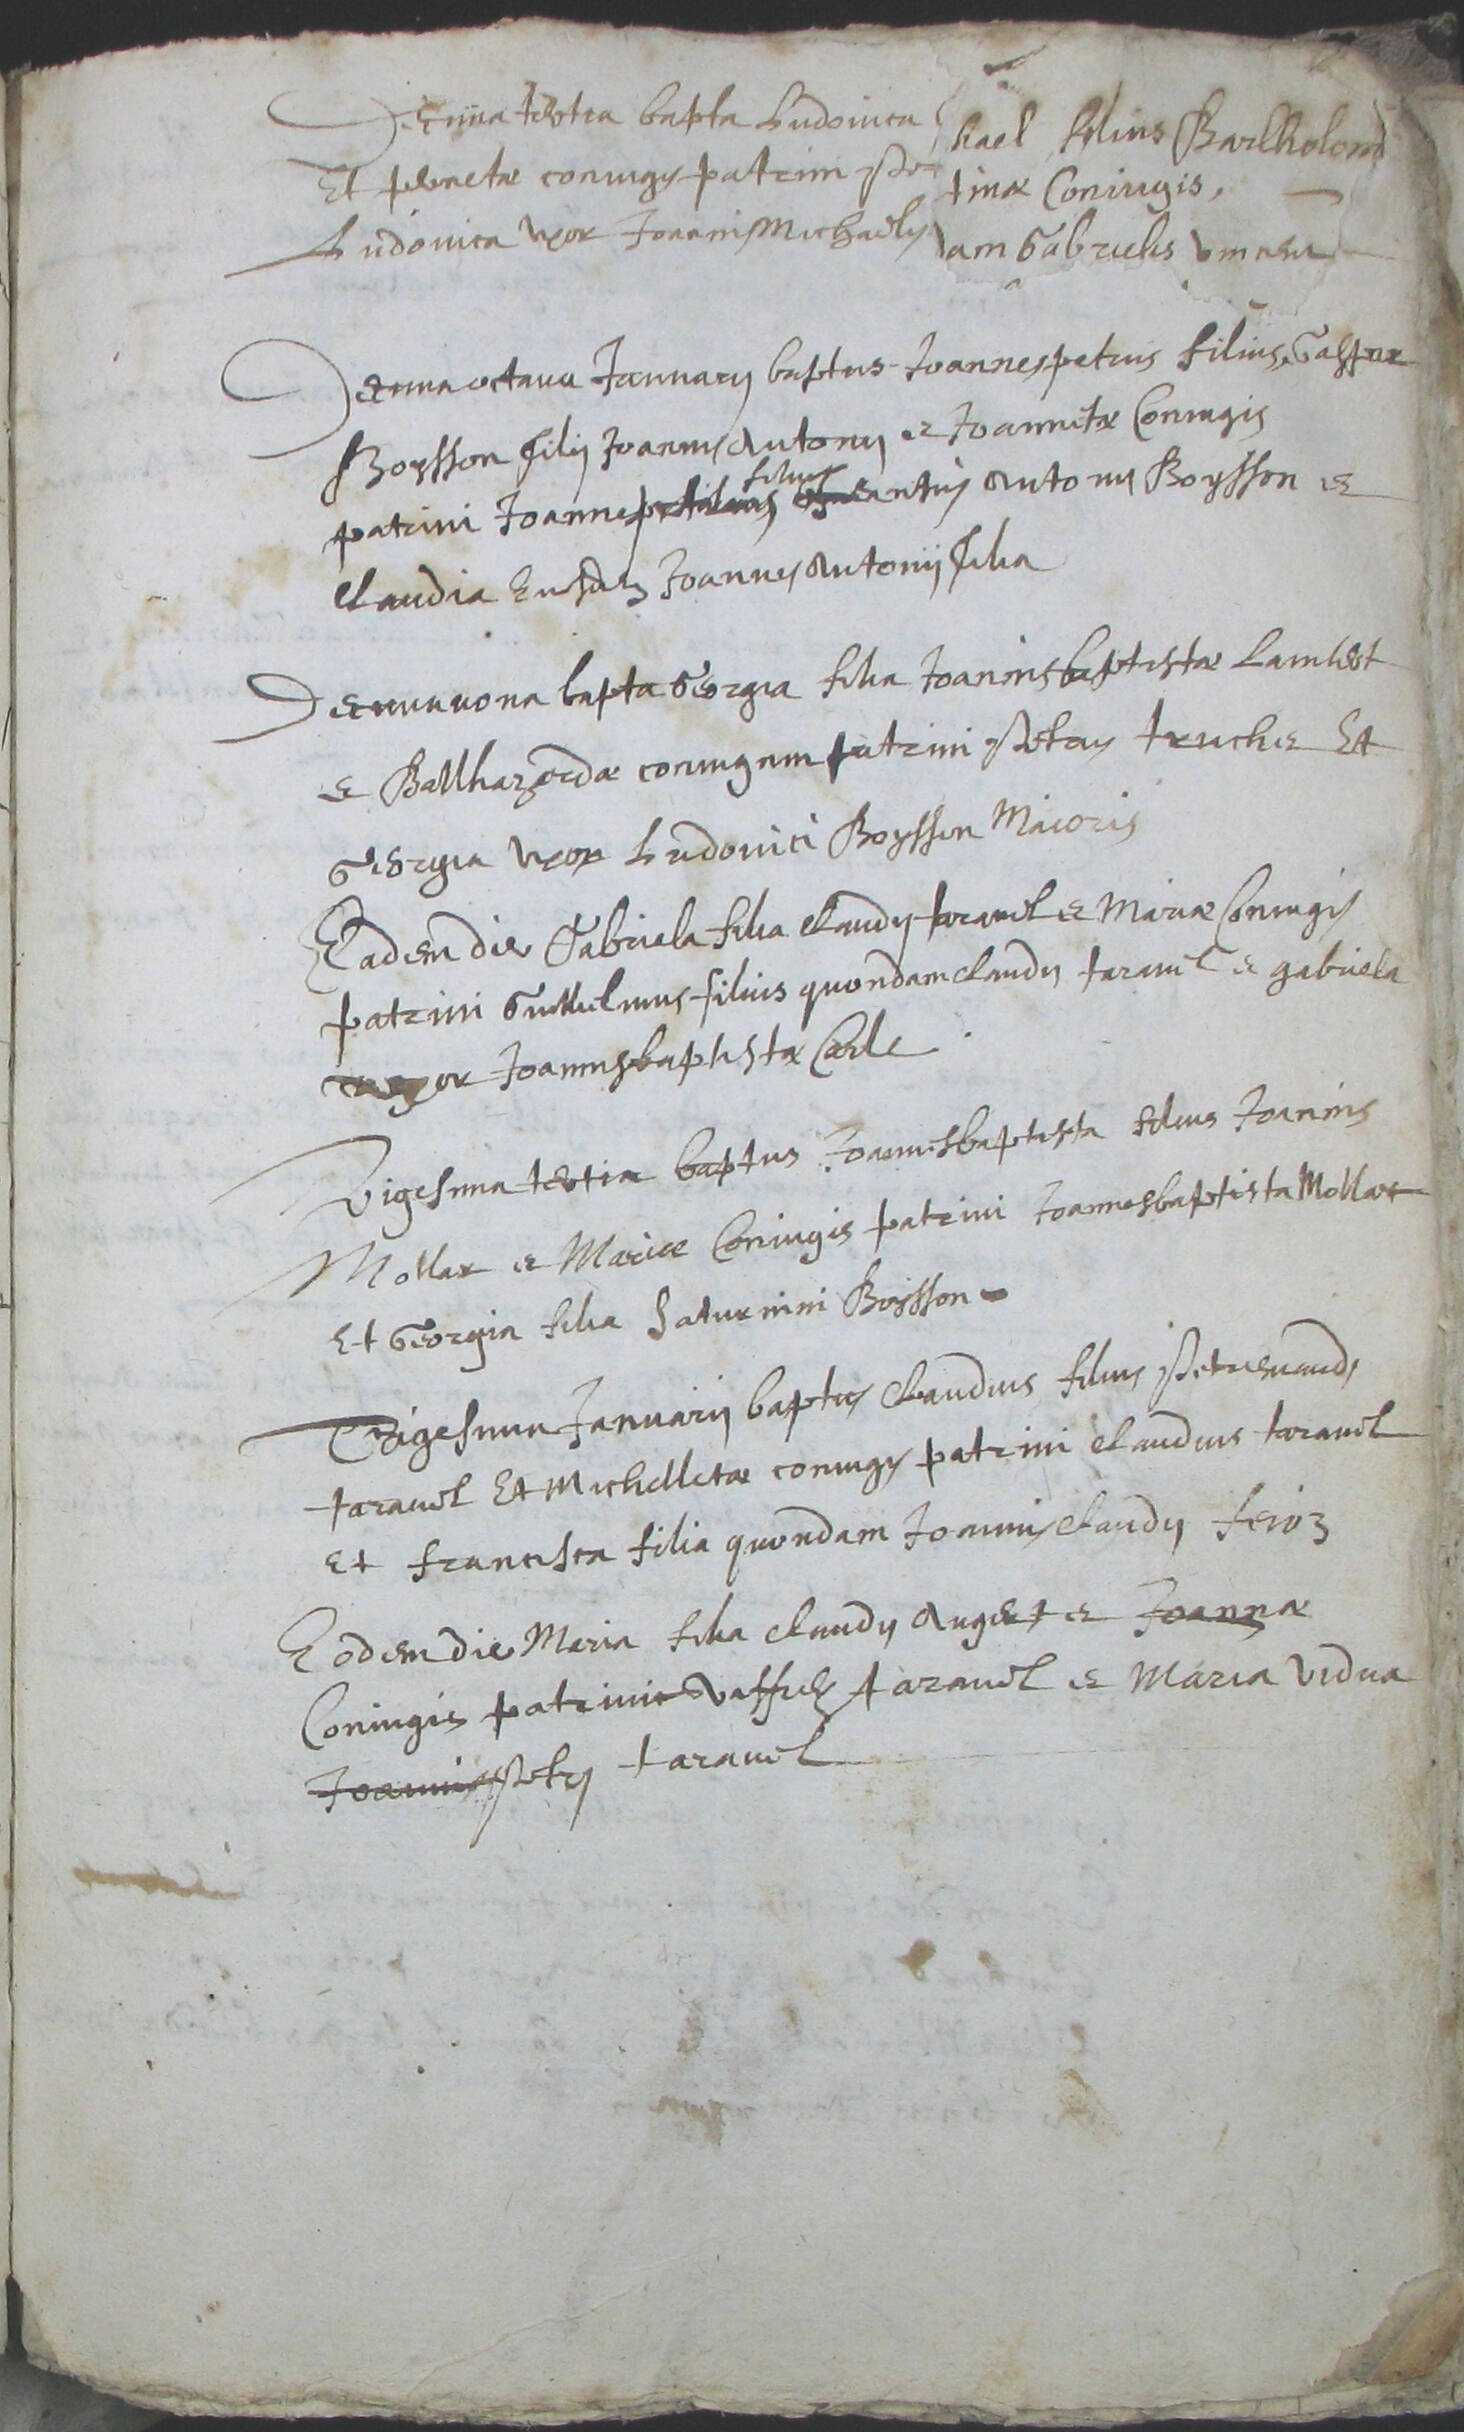 Decima tertia bapta Ludovica
Et peronetae coniugys patrini
Ludovica uxor Joannis Michaelis
kael filius Bartholom
tinae Coniugis,
am Gabrielis vincent
Decima octava Januarij baptus Joannes petrus filius Gaspar
Boysson filij Joannis Antonij et Joannetae Coniugis
patrini Joannes filius Antonij Boysson et
Claudia Eiusdem Joannis Antonij filia
Decima nona bapta Georgia filia Joannis baptistae Lambert
et Balthazardae coniugum patrini petrus truchet Et
Georgia uxor Ludovici Boysson Maioris
Eadem die Gabriela filia Claudij taravel et Mariae Coniugis
patrini Guillelmus filius quondam Claudij taravel et gabriela
uxor Joannis baptistae Carle
Vigesima tertia baptus Joannes baptista filius Joannis
Mollar et Mariae Coniugis patrini Joannes baptista Mollar
Et Georgia filia Saturnini Boysson
Trigesima Januarij baptus Claudius filius
taravel Et Michelletae coniugys patrini Claudius taravel
Et francisca filia quondam Joannis Claudij
Eodem die Maria filia Claudij Augert et Joannae
Coniugis patrini taravel et Maria vidua
Joannis petri taravel